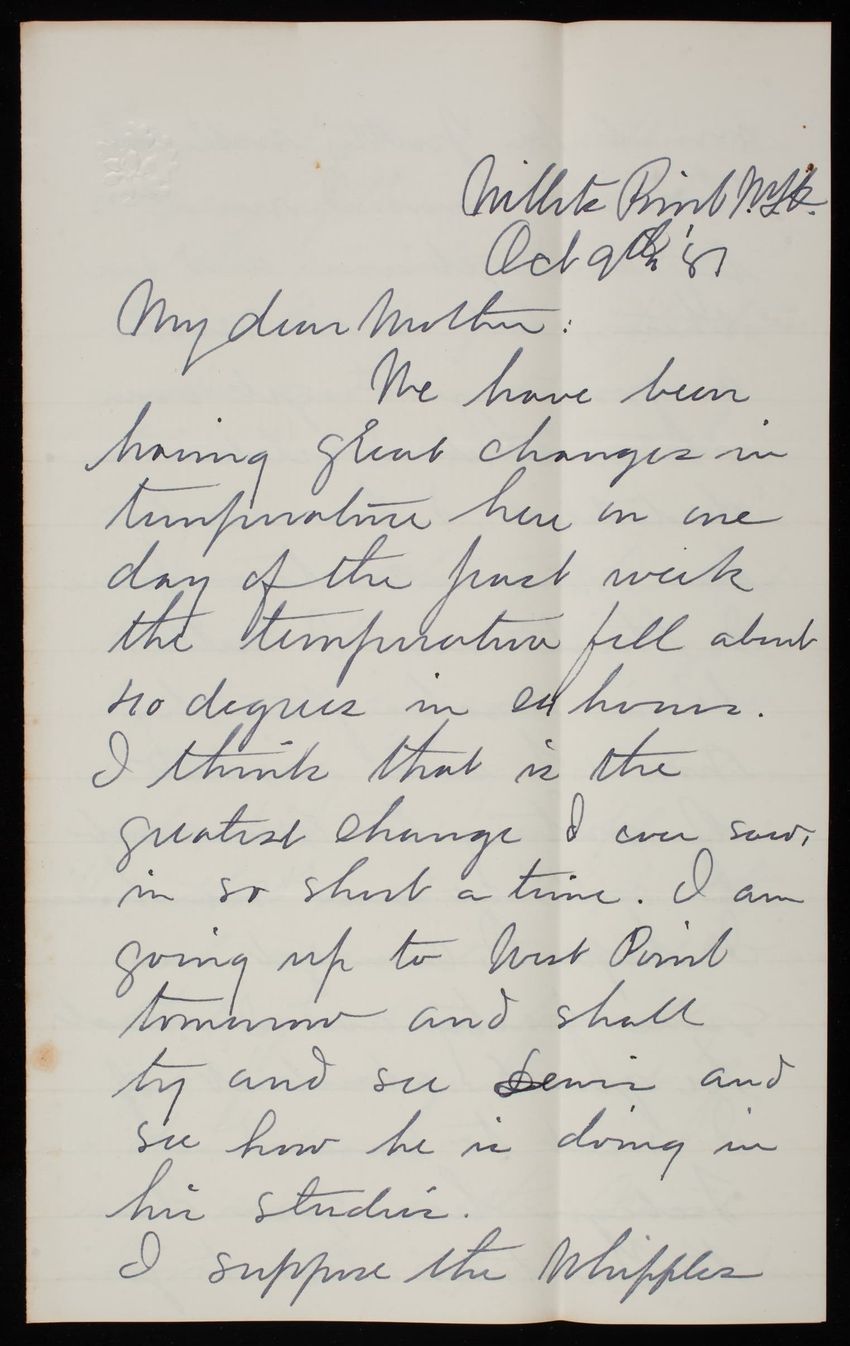 Willets Point N.Y.
Oct 9th '87
My dear Mother:
We have been
having great changes in
temperature here on one
day of the past week
the temperature fell about
40 degrees in 24 hours.
I think that is the
greatest change I ever saw,
in so short a time. I am
going up to West Point
tomorrow and shall
try and see Lewis and
see how he is doing in
his studies.
I suppose the Whipples